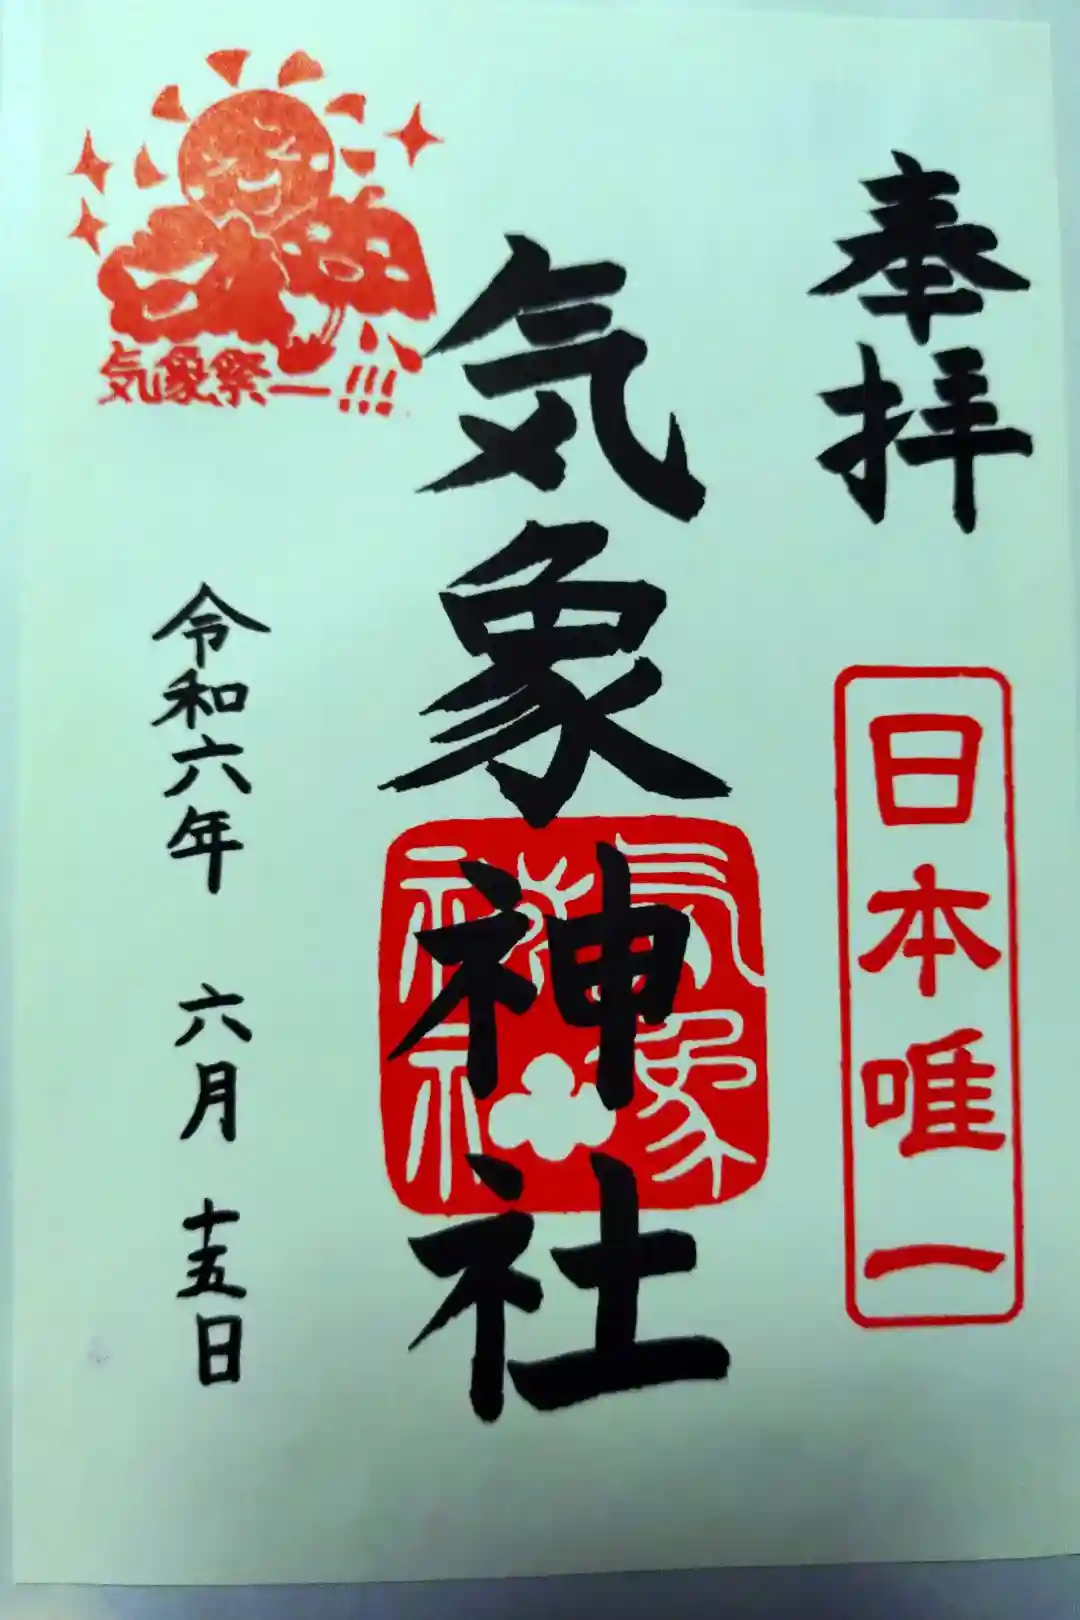 奉拝
日本唯一
気象神社
気象神社
気象祭ー!!!
令和六年 六月 十五日